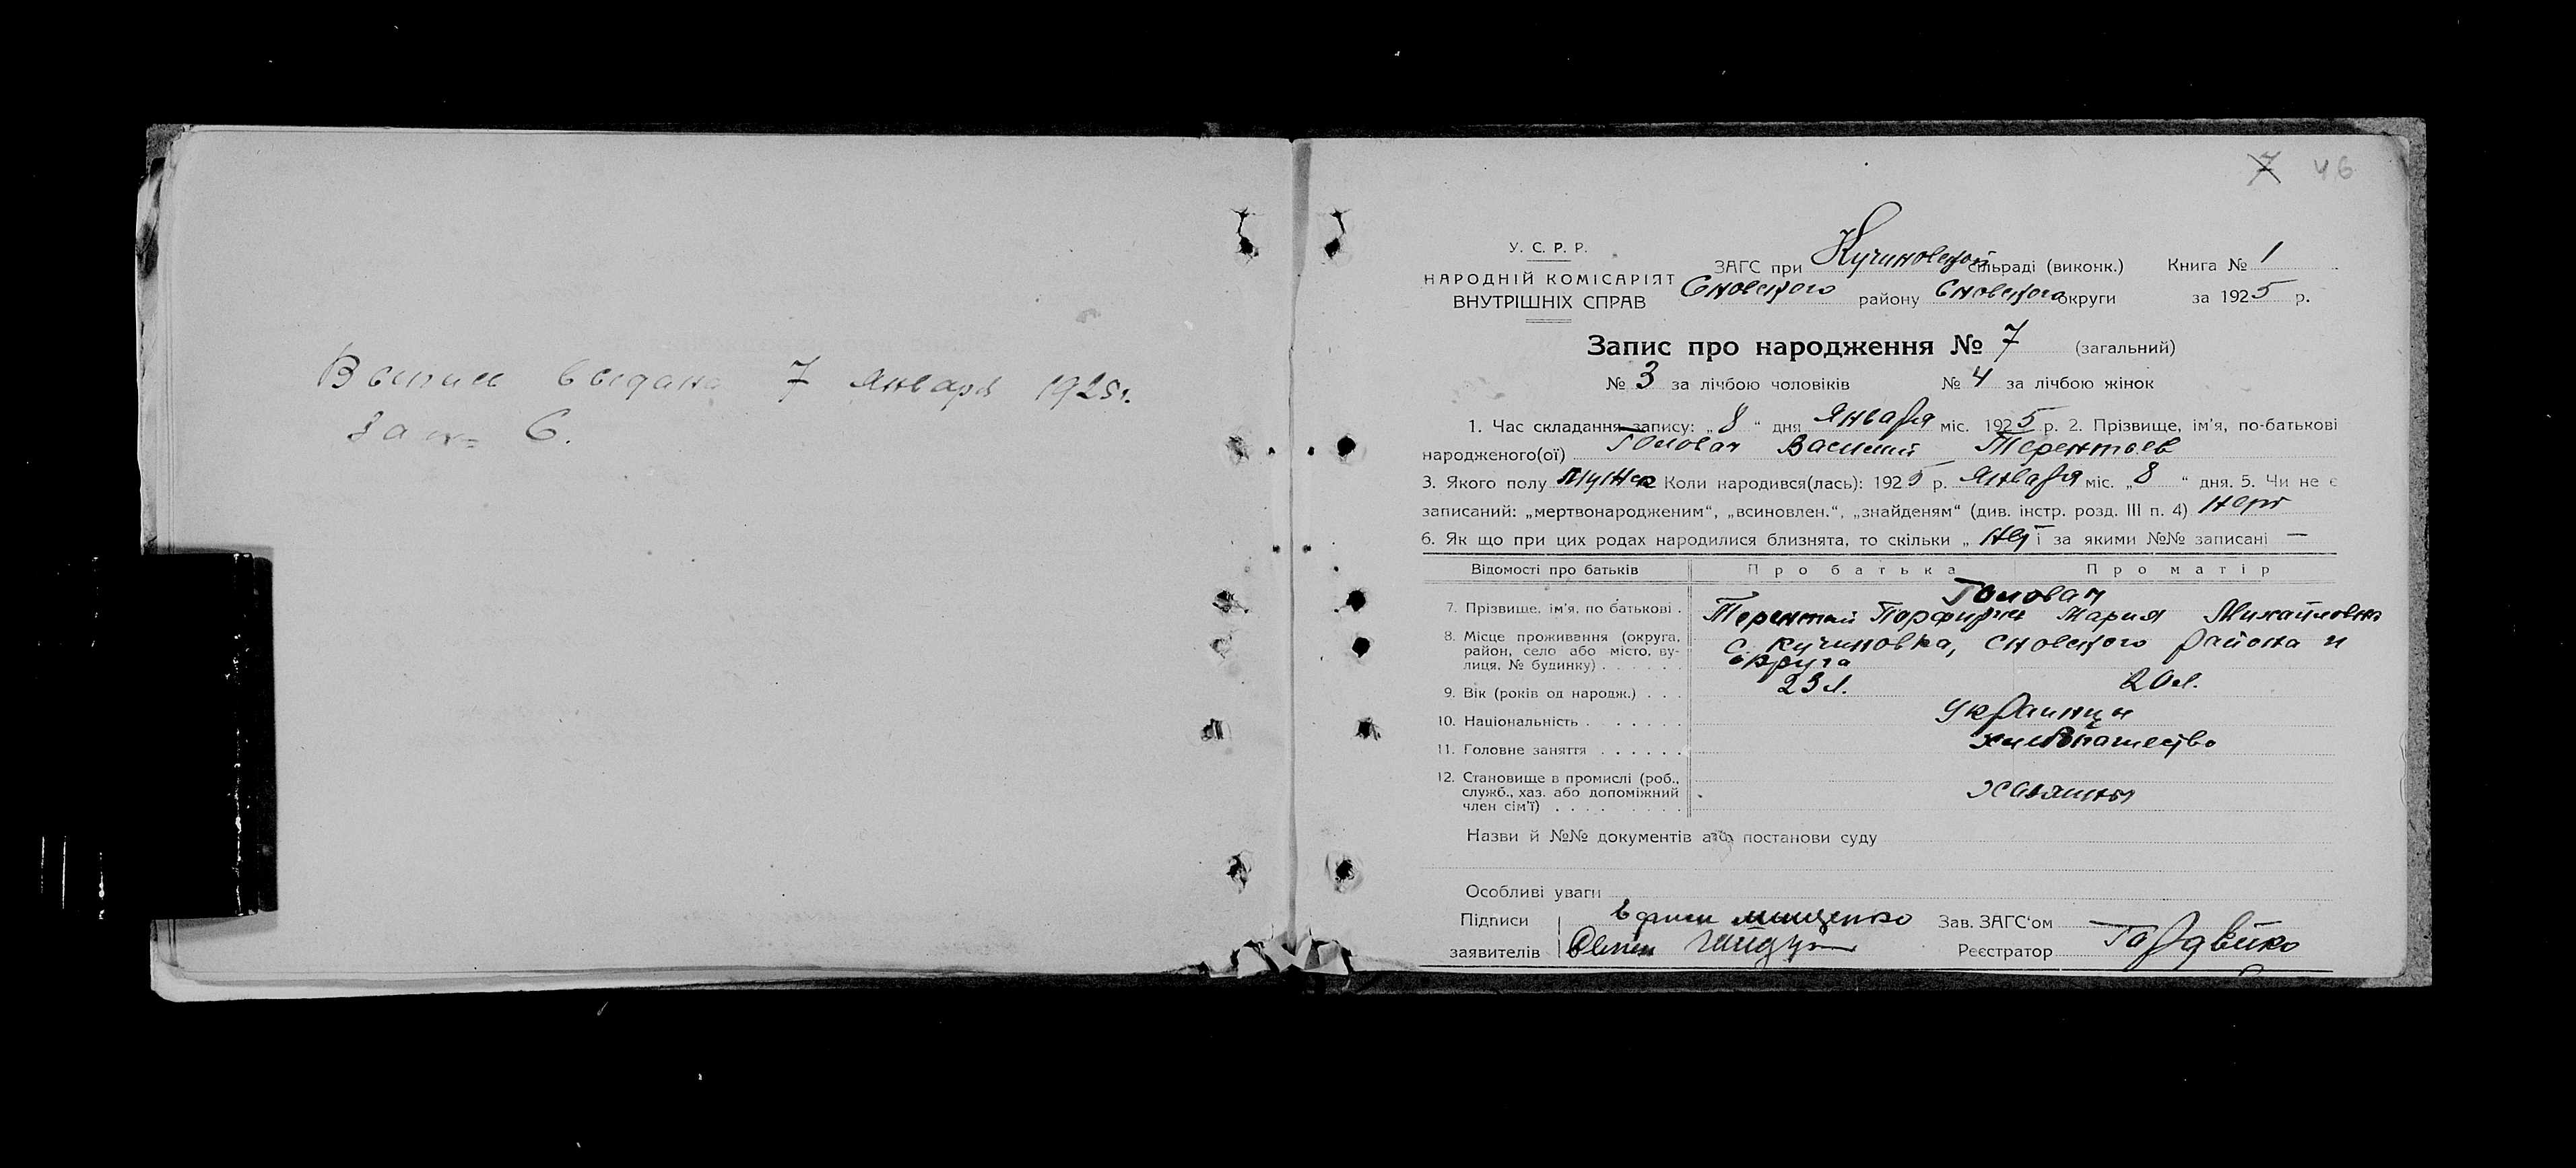 Выпись выдана 7 января 1925 г.
за № 6.
7 46
У. С. Р. Р.
НАРОДНІЙ КОМІСАРІЯТ
ВНУТРІШНІХ СПРАВ
ЗАГС при Кучиновской сільраді (виконк.) Книга № 1
Сновского району Сновского округи за 1925 р.
Запис про народження № 7 (загальний)
№ 3 за лічбою чоловіків № 4 за лічбою жінок
1. Час складання запису: „8“ дня Января міс. 1925 р. 2. Прізвище, ім'я, по-батькові
народженого(ої) Голован Василий Терентьев
3. Якого полу мужск Коли народився(лась): 1925 р. Января міс. „8“ дня. 5. Чи не є
записаний: „мертвонародженим“, „всиновлен.“, „знайденям“ (див. інстр. розд. III п. 4) нет
6. Як що при цих родах народилися близнята, то скільки „ нет і за якими №№ записані —
Відомості про батьків Про батька Про матір
Голован
7. Прізвище, ім'я, по батькові . Терентий Мария Михайловна
8. Місце проживання (округа, район, село або місто, вулиця, № будинку) . . . . . с. Кучиновка, Сновского района и
округа
9. Вік (років од народж.) . . . 23 л. 20 л.
10. Національність . . . . . . . Украинцы
11. Головне заняття . . . . . . хлебопашество
12. Становище в промислі (роб., служб., хаз. або допоміжний член сім'ї) . . . . . . . . . хозяины
Назви й №№ документів або постанови суду
Особливі уваги
Підписи Мищенко Зав. ЗАГС'ом
заявителів Реєстратор